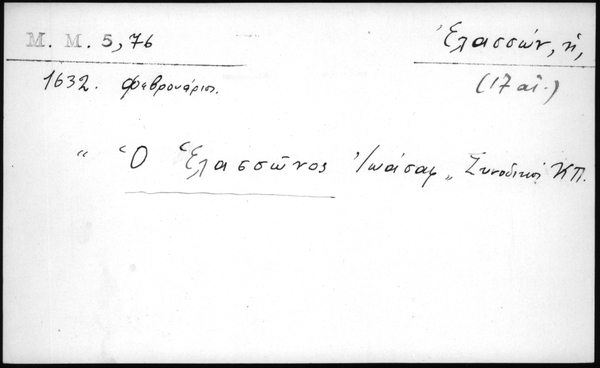 M. M. 5, 76
Ἐλασσών, ἡ,
1632. Φεβρουάριος.
(17 αἰ.)
“ Ὁ Ἐλασσῶνος Ἰωάσαφ „ Συνοδικοὶ ΚΠ.